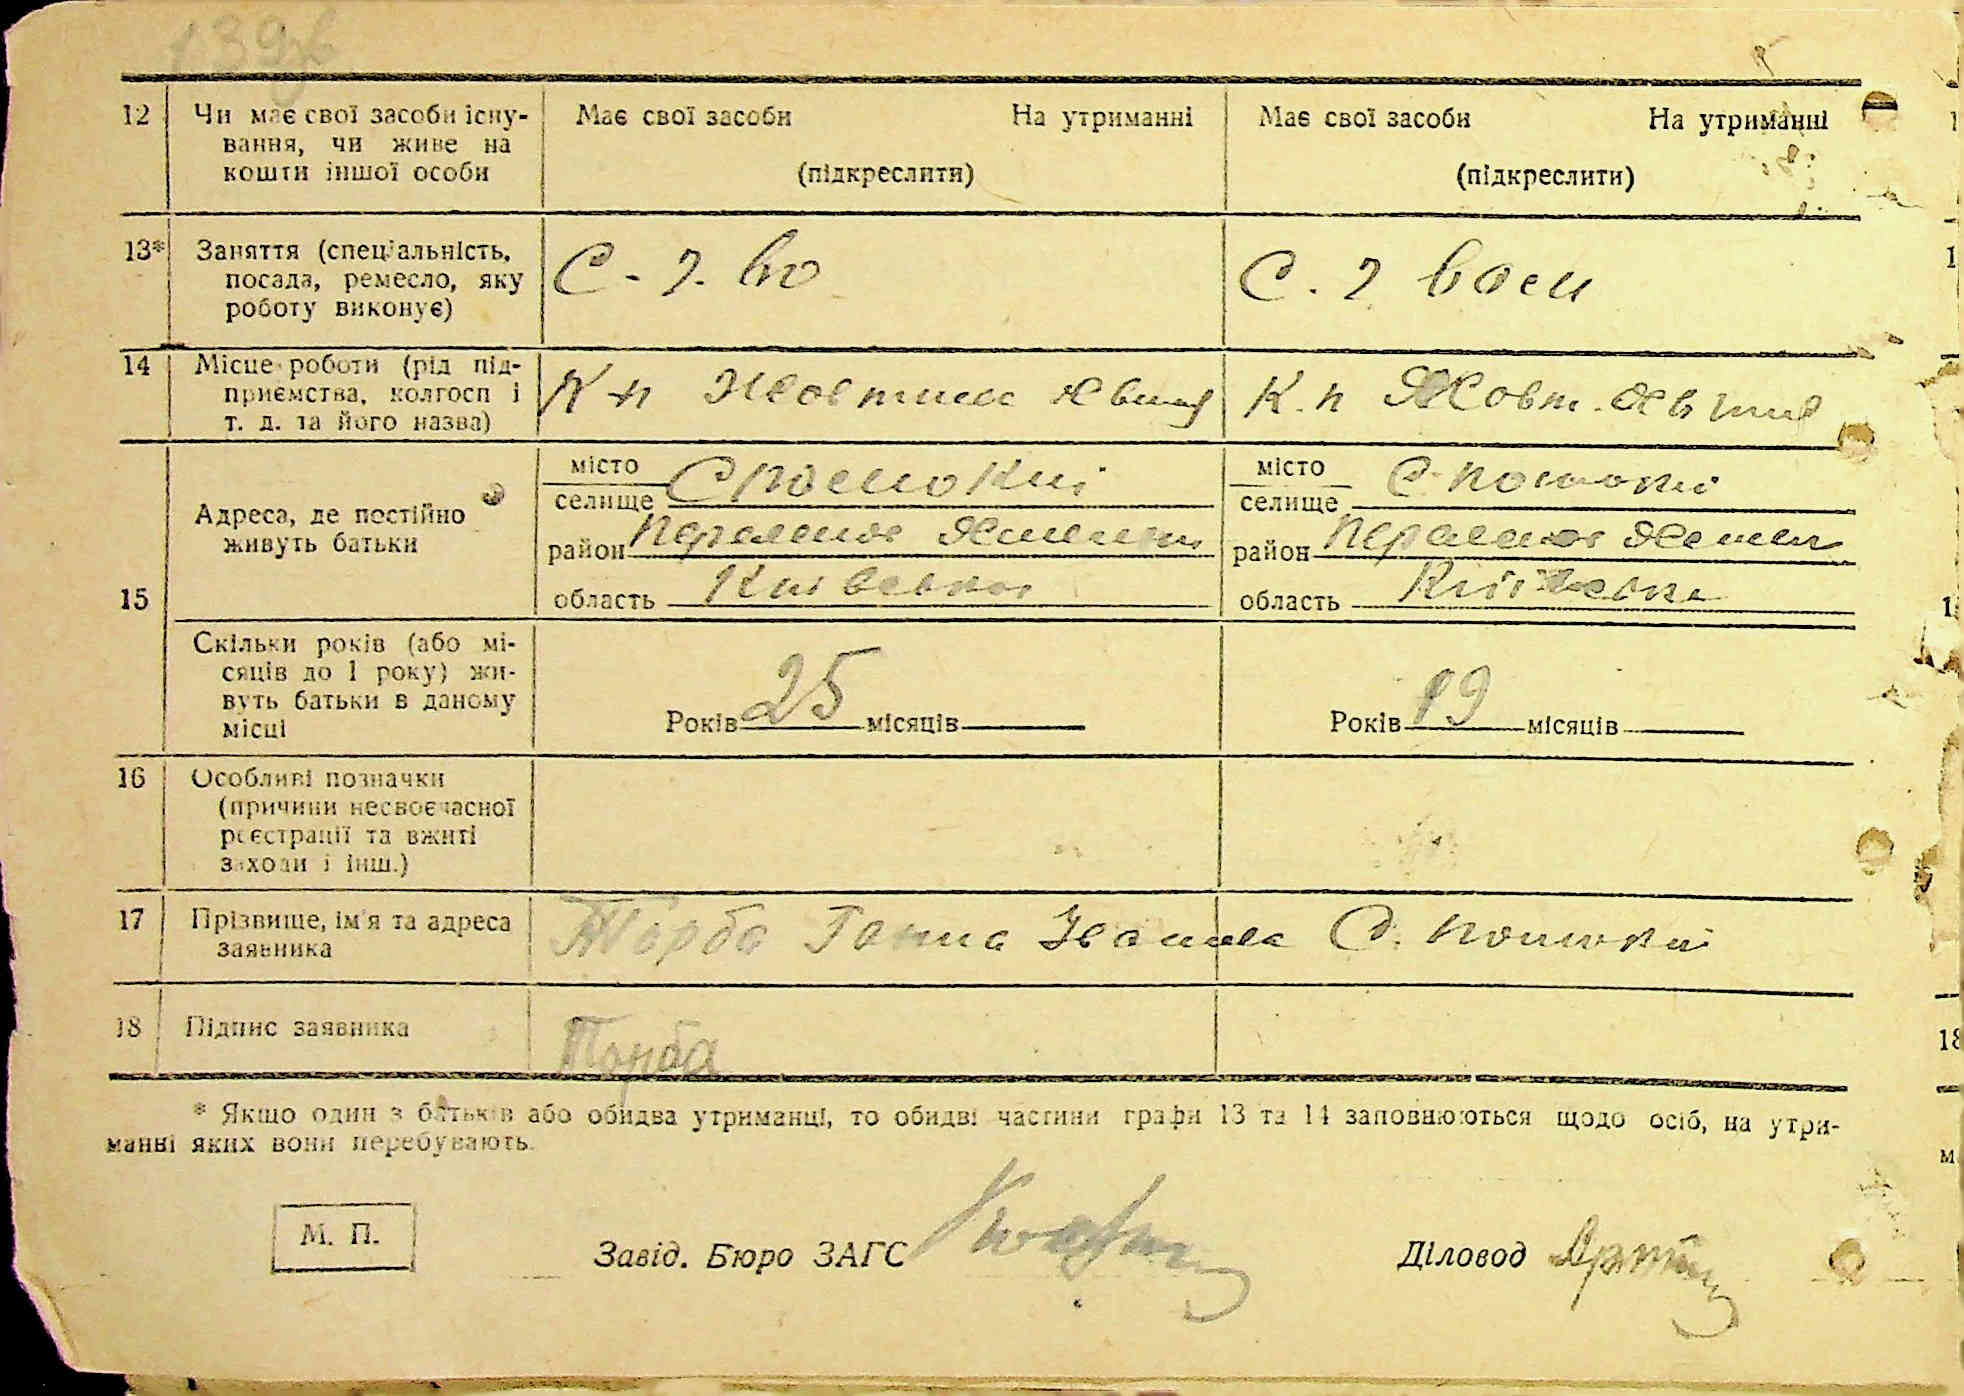 139зв
12 Чи має свої засоби існу- Має свої засоби На утриманні Має свої засоби На утриманні
вання, чи живе на
кошти іншої особи (підкреслити) (підкреслити)
13* Заняття (спеціальність, С. г. во С. г
посада, ремесло, яку
роботу виконує)
14 Місце роботи (рід під-
приємства, колгосп і К-п К.п Жовт.
т. д. та його назва)
місто місто
селище селище С. Пошоки
Адреса, де постійно
живуть батьки район район
область Київська область Київська
15
Скільки років (або мі-
сяців до 1 року) жи-
вуть батьки в даному
місці Років 25 місяців Років 19 місяців
16 Особливі позначки
(причини несвоєчасної
реєстрації та вжиті
заходи і інш.)
17 Прізвище, ім'я та адреса Торба Ганна Іванівна С. Пошоки
заявника
18 Підпис заявника Торба
* Якщо один з батьків або обидва утриманці, то обидві частини графи 13 та 14 заповнюються щодо осіб, на утри-
манні яких вони перебувають.
М. П.
Завід. Бюро ЗАГС Діловод